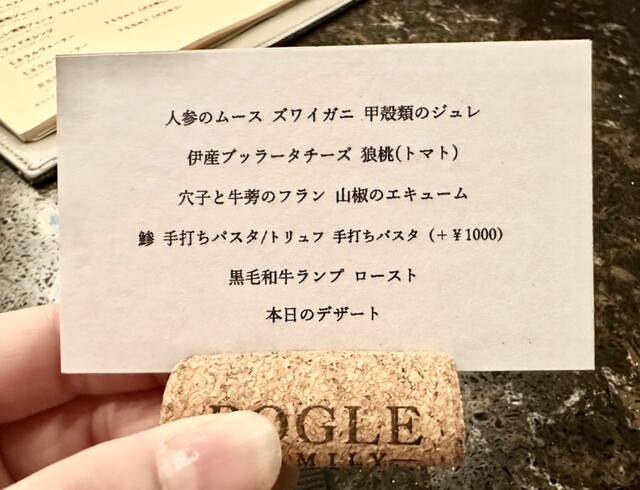 人参のムース ズワイガニ 甲殻類のジュレ
伊産ブッラータチーズ 狼桃(トマト)
穴子と牛蒡のフラン 山椒のエキューム
鯵 手打ちパスタ/トリュフ 手打ちパスタ (+¥1000)
黒毛和牛ランプ ロースト
本日のデザート
BOGLE